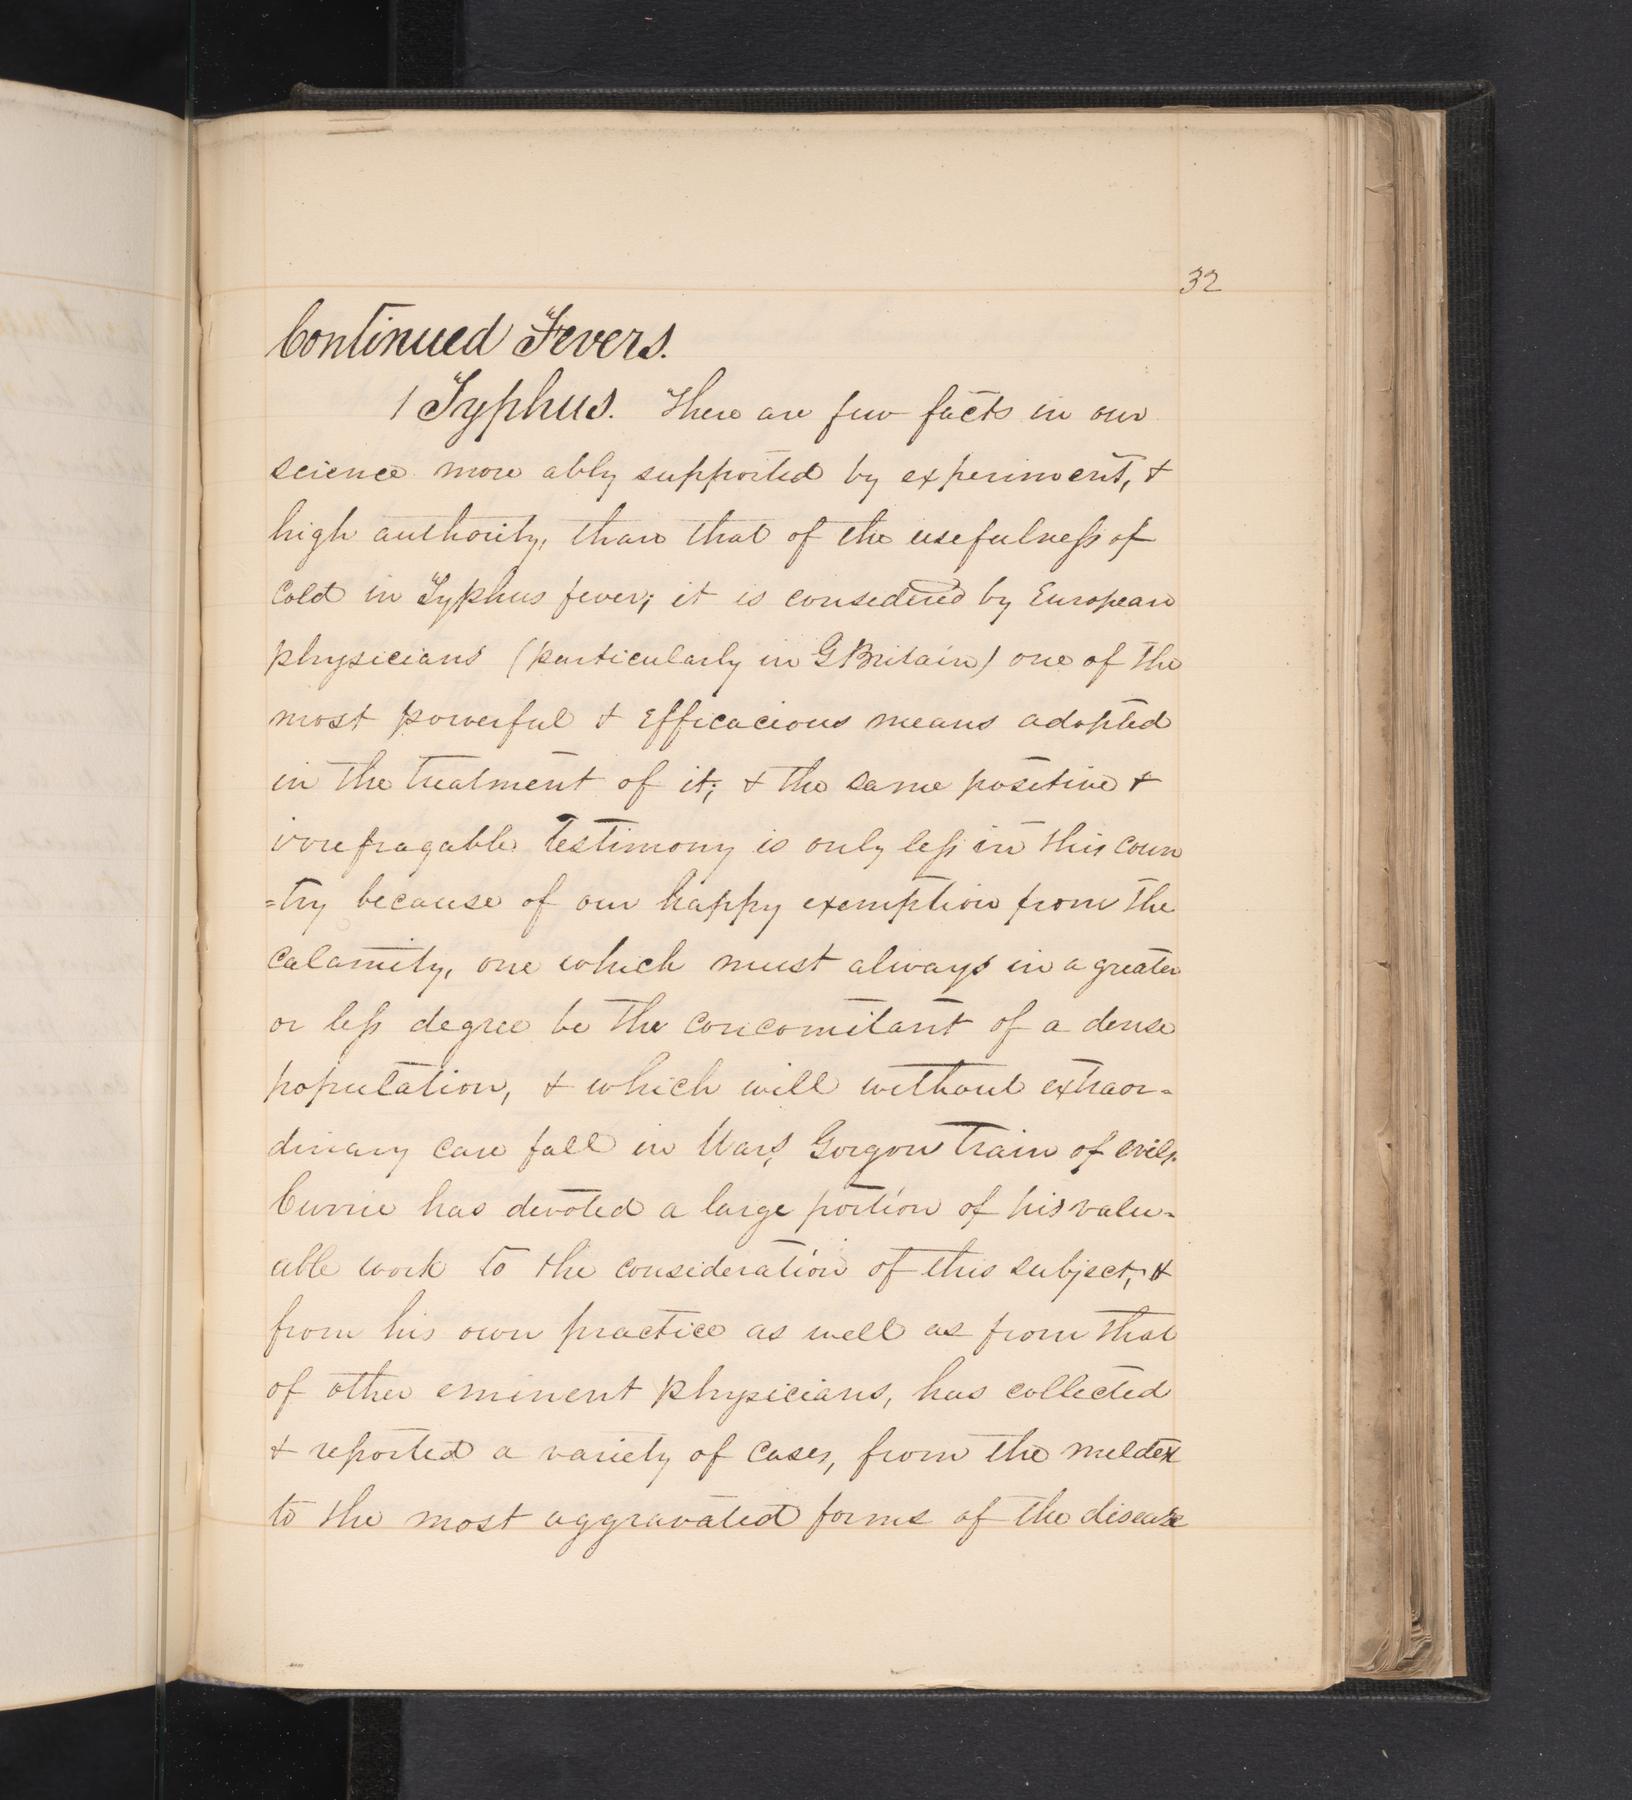 32
Continued Fevers.
1 Typhus. There are few facts in our
science more ably supported by experiment, &
high authority, than that of the usefulness of
Cold in Typhus fever; it is considered by European
physicians (particularly in G Britain) one of the
most powerful & Efficacious means adopted
in the treatment of it; & the same positive &
irrefragable Testimony is only less in this coun
=try because of our happy exemption from the
calamity, one which must always in a greater
or less degree be the concomitant of a dense
population, & which will without extraor-
dinary care fall in Wars, Gorgon train of evils.
Currie has devoted a large portion of his valu-
able work to the consideration of this subject, &
from his own practice as well as from that
of other eminent physicians, has collected
& reported a variety of cases, from the mildest
to the most aggravated forms of the disease